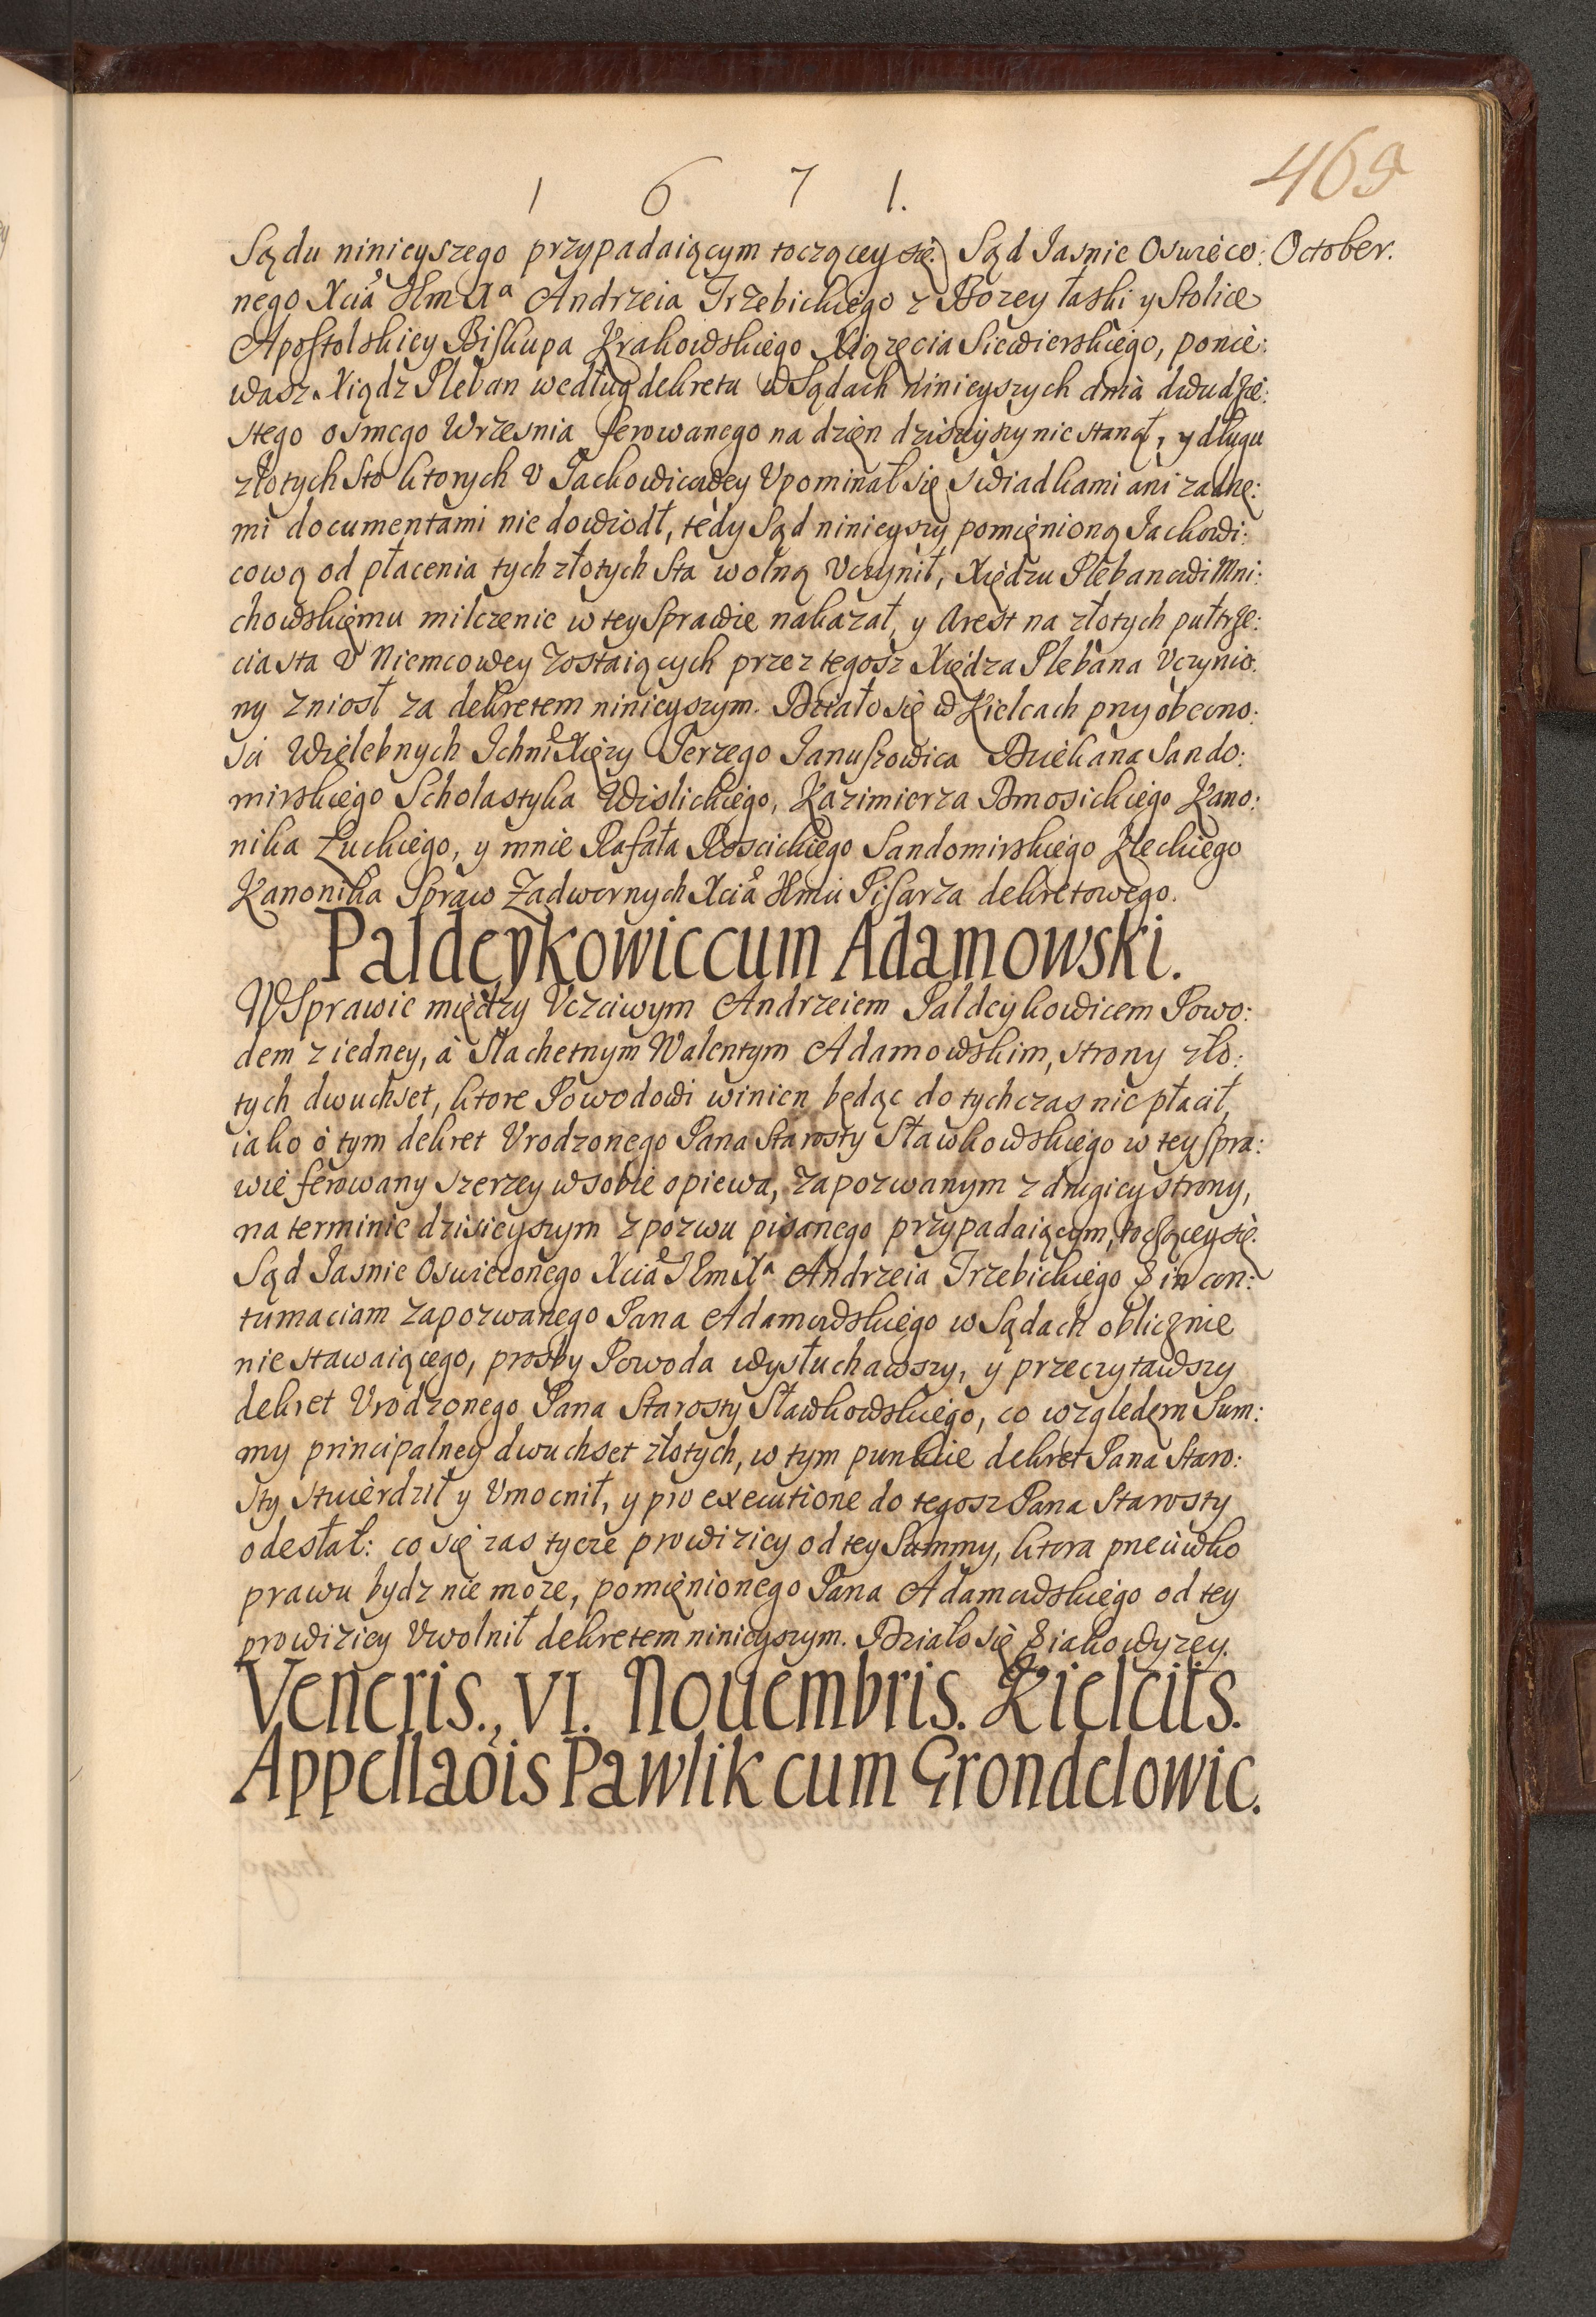 1 6 7 1.
469
Sądu ninieyszego przypadaiącym toczącey się. Sąd Jasnie Oswiéco:
October.
nego Xcia Jm Xa Andrzeia Trzebickiego z Bozey łaski y Stolice
Apostolskiey Biskupa Krakowskiego Xiązęcia Siewierskiego, ponie:
wasz Xiądz Pleban według dekretu w Sądach ninieyszych dnia dwudzie:
stego osmego Wrzesnia ferowanego na dzien dzisieyszy nie stanął, y długu
złotych Sto ktorych V Jackowicowey Vpominał się swiadkami ani zadne:
mi documentami nie dowiodł, tedy Sąd ninieyszy pomienioną Jackowi:
cową od płacenia tych złotych Sta wolną Vczynił, Xiędzu Plebanowi Mni:
chowskiemu milczenie w tey Sprawie nakazał, y Arest na złotych pułtrze:
cia sta V Niemcowey Zostaiących przez tegosz Xiędza Plebana Vczynio:
ny zniosł za dekretem ninieyszym. Działo się w Kielcach przy obecno:
sci Wielebnych Ichm Xięzy Jerzego Januszowica Dziekana Sando:
mirskiego Scholastyka Wislickiego, Kazimierza Bmosickiego Kano:
nika Łuckiego, y mnie Rafała Roscickiego Sandomirskiego Kieckiego
Kanonika Spraw Zadwornych Xcia Jmci Pisarza dekretowego.
Paldeykowic cum Adamowski.
W Sprawie między Vczciwym Andrzeiem Paldeykowicem Powo:
dem z iedney, à Slachetnym Walentym Adamowskim, strony zło:
tych dwuchset, ktore Powodowi winien będąc do tychczas nie płacił,
iako o tym dekret Vrodzonego Pana Starosty Sławkowskiego w tey spra:
wie ferowany szerzey w sobie opiewa, Zapozwanym z drugiey strony,
na terminie dzisieyszym z pozwu pisanego przypadaiącym, toczącey się.
Sąd Jasnie Oswieconego Xcia Jm Xa Andrzeia Trzebickiego & in con:
tumaciam Zapozwanego Pana Adamowskiego w Sądach oblicznie
nie stawaiącego, prosby Powoda wysłuchawszy, y przeczytawszy
dekret Vrodzonego Pana Starosty Sławkowskiego, co względem Sum:
my principalney dwuchset złotych, w tym punkcie dekret Pana Staro:
sty stwierdził y Vmocnił, y pro executione do tegosz Pana Starosty
odesłał: co się zas tycze prowiziey od tey Summy, ktora przeciwko
prawu bydz nie moze, pomienionego Pana Adamowskiego od tey
prowiziey Vwolnił dekretem ninieyszym. Działo się & iako wyzey.
Veneris., VI. Nouembris. Kielciis.
Appellaois Pawlik cum Grondelowic.